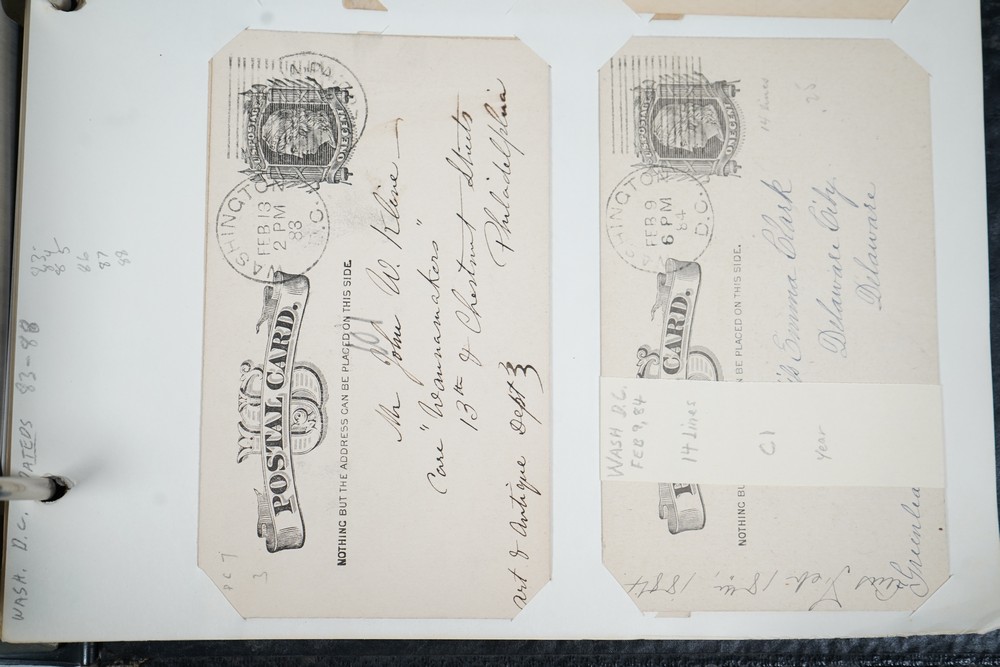 WASH. D.C. DATEDS 83-88
83.
84
85
86
87
88
U.S. POSTAGE
ONE CENT
WASHINGTON
FEB 13
2 PM
83
D.C.
POSTAL CARD.
NOTHING BUT THE ADDRESS CAN BE PLACED ON THIS SIDE.
Mr John W. Kline
Care "Wannamakers"
13th & Chestnut Streets
Philadelphia
Art & Antique Dept
PC 7
3
U.S. POSTAGE
ONE CENT
WASHINGTON
FEB 9
6 PM
84
D.C.
CARD.
NOTHING BU
N BE PLACED ON THIS SIDE.
14 lines
Emma Clark
Delaware City.
Delaware
WASH D.C.
FEB 9, 84
14 lines
C1
year
1884